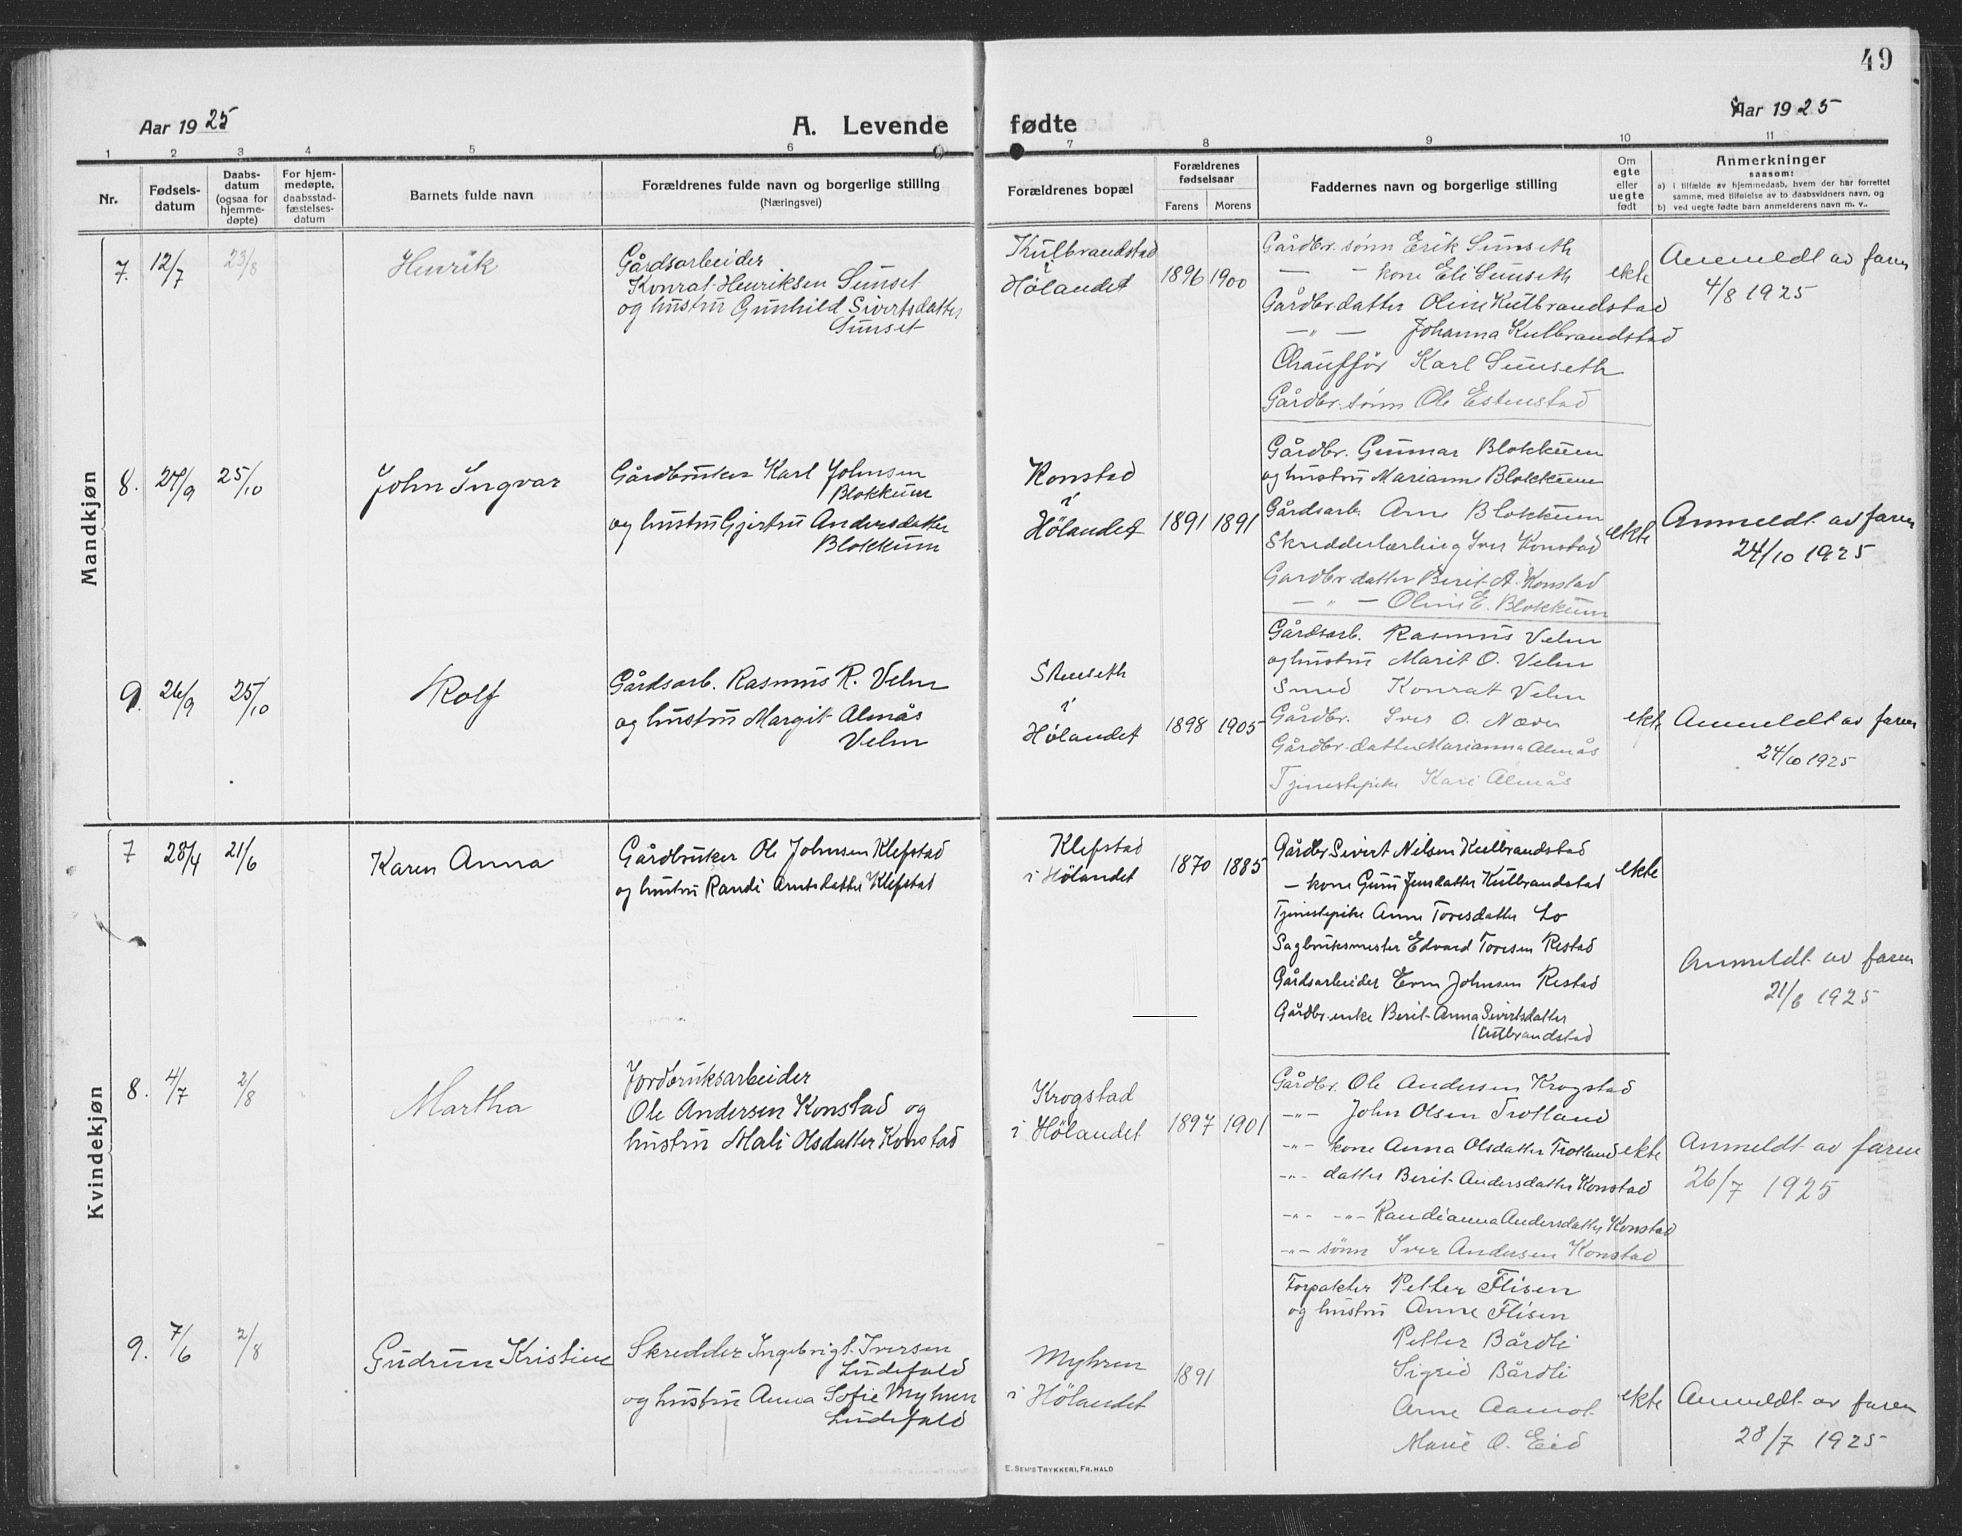 49
Aar 1925
A. Levende
fødte
Aar 1925
1 2 3 4 5 6 7 8 9 10 11
Nr.
Fødsels-
datum
Daabs-
datum
(ogsaa for
hjemme-
døpte)
For hjem-
medøpte,
daabsstad-
fæstelses-
datum
Barnets fulde navn
Forældrenes fulde navn og borgerlige stilling
(Næringsvei)
Forældrenes bopæl
Forældrenes
fødselsaar
Farens
Morens
Faddernes navn og borgerlige stilling
Om
egte
eller
uegte
født
Anmerkninger
saasom:
a) i tilfælde av hjemmedaab, hvem der har forrettet
samme, med tilføielse av to daabsvidners navn, og
b) ved uegte fødte barn anmelderens navn m. v.
Mandkjøn
7. 12/7 23/8
Henrik
Gårdsarbeider
Konrat Henriksen Sunset
og hustru Gunhild Sivertsdatter
Sunset
Kulbrandstad
i
Hølandet
1896 1900
Gårdbr. sønn Erik Sunseth
— - kone Eli Sunseth
Gårdbr datter Oline Kulbrandstad
— " — Johanna Kulbrandstad
Chauffør Karl Sunseth
Gårdbr. sønn Ole Estenstad
ekte
Anmeldt av faren
4/8 1925
8. 27/9 25/10
John Ingvar
Gårdbruker Karl Johnsen
Blokkum
og hustru Gjertru Andersdatter
Blokkum
Konstad
i
Hølandet
1891 1891
Gårdbr. Gunnar Blokkum
og hustru Mariann Blokkum
Gårdsarb. Arne Blokkum
Skredderlærling Iver Konstad
Gardbr datter Berit A. Konstad
— " — Oline E. Blokkum
ekte
Anmeldt av faren
24/10 1925
9. 26/9 25/10
Rolf
Gårdsarb. Rasmus R. Velm
og hustru Margit Almås
Velm
Skuseth
i
Hølandet
1898 1905
Gårdsarb. Rasmus Velm
og hustru Marit O. Velm
Smed Konrat Velm
Gårdbr. Iver O. Næver
Gårdbr. datter Marianna Almås
Tjenestepike Kari Almås
ekte
Anmeldt av faren
24/10 1925
Kvindekjøn
7 28/4 21/6
Karen Anna
Gårdbruker Ole Johnsen Klefstad
og hustru Randi Arntsdatter Klefstad
Klefstad
i Hølandet
1870 1885
Gårdbr Sivert Nilsen Kulbrandstad
— kone Guru Jensdatter Kulbrandstad
Tjenestepike Anne Toresdatter Lo
Sagbruksmester Edvard Toresen Restad
Gårdsarbeider Even Johnsen Restad
Gårdbr. enke Berit-Anna Sivertsdatter
Kulbrandstad
ekte
Anmeldt av faren
21/6 1925
8. 4/7 2/8
Martha
Jordbruksarbeider
Ole Andersen Konstad og
hustru Mali Olsdatter Konstad
Krogstad
i Hølandet
1897 1901
Gårdbr. Ole Andersen Krogstad
-"- John Olsen Trotland
-"- kone Anna Olsdatter Trotland
-"- datter Berit Andersdatter Konstad
-"- -"- Randianna Andersdatter Konstad
-"- sønn Iver Andersen Konstad
ekte
Anmeldt av faren
26/7 1925
9. 7/6 2/8
Gudrun Kristine
Skredder Ingebrigt Iversen
Ludefald
og hustru Anna Sofie Myhren
Ludefald
Myhren
i Hølandet
1891
Forpakter Petter Flisen
og hustru Anne Flisen
Petter Bårdli
Sigrid Bårdli
Arne Aamot
Marie O. Eid
ekte
Anmeldt av faren
28/7 1925
E. Sem's Trykkeri, Fr. Hald